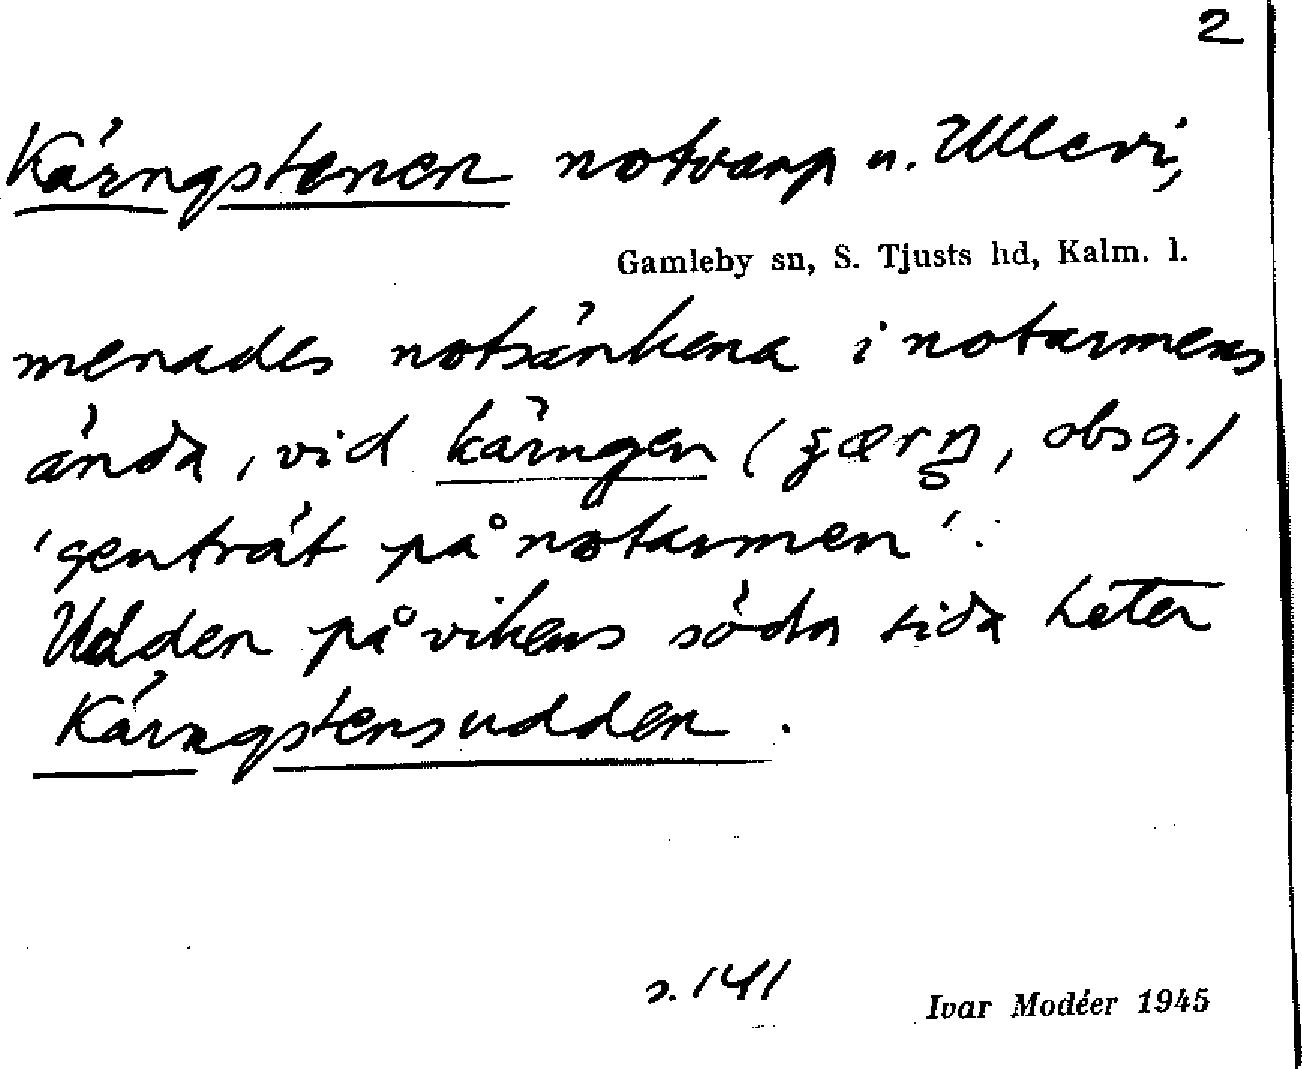 2
Kärngstenen notvarp u. Ullevi,
Gamleby sn, S. Tjusts hd, Kalm. l.
menades notsänkena i notarmens
ända, vid kärngen (                , obs g.)
'genträt på notarmen'.
Udden på vikens södra sida heter
Kärngstensudden.
s. 141
Ivar Modéer 1945